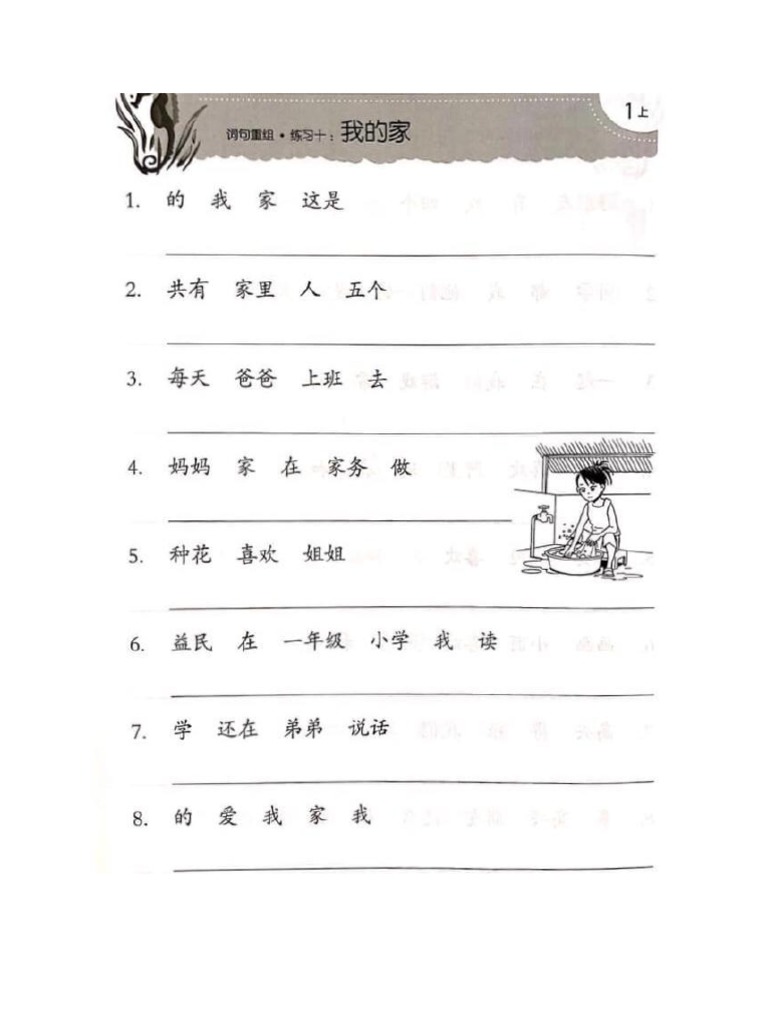 1上
词句重组・练习十：我的家
1. 的 我 家 这是
2. 共有 家里 人 五个
3. 每天 爸爸 上班 去
4. 妈妈 家 在 家务 做
5. 种花 喜欢 姐姐
6. 益民 在 一年级 小学 我 读
7. 学 还在 弟弟 说话
8. 的 爱 我 家 我